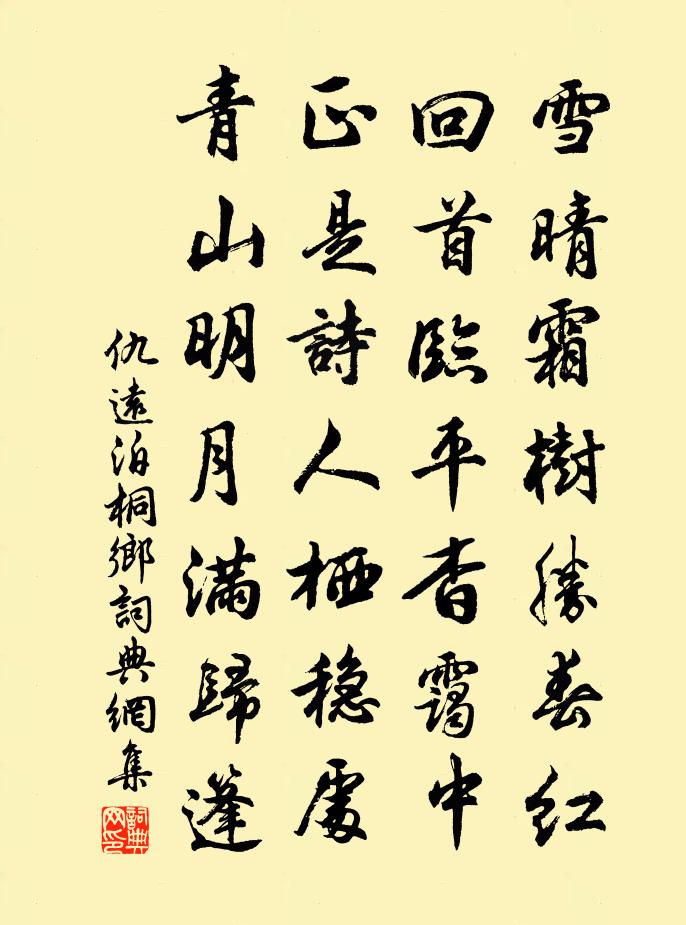 雪晴霜樹勝春紅
回首臨平杳靄中
正是詩人栖穏處
青山明月滿歸篷
仇遠泊桐鄉詞典網集
詞典
网印